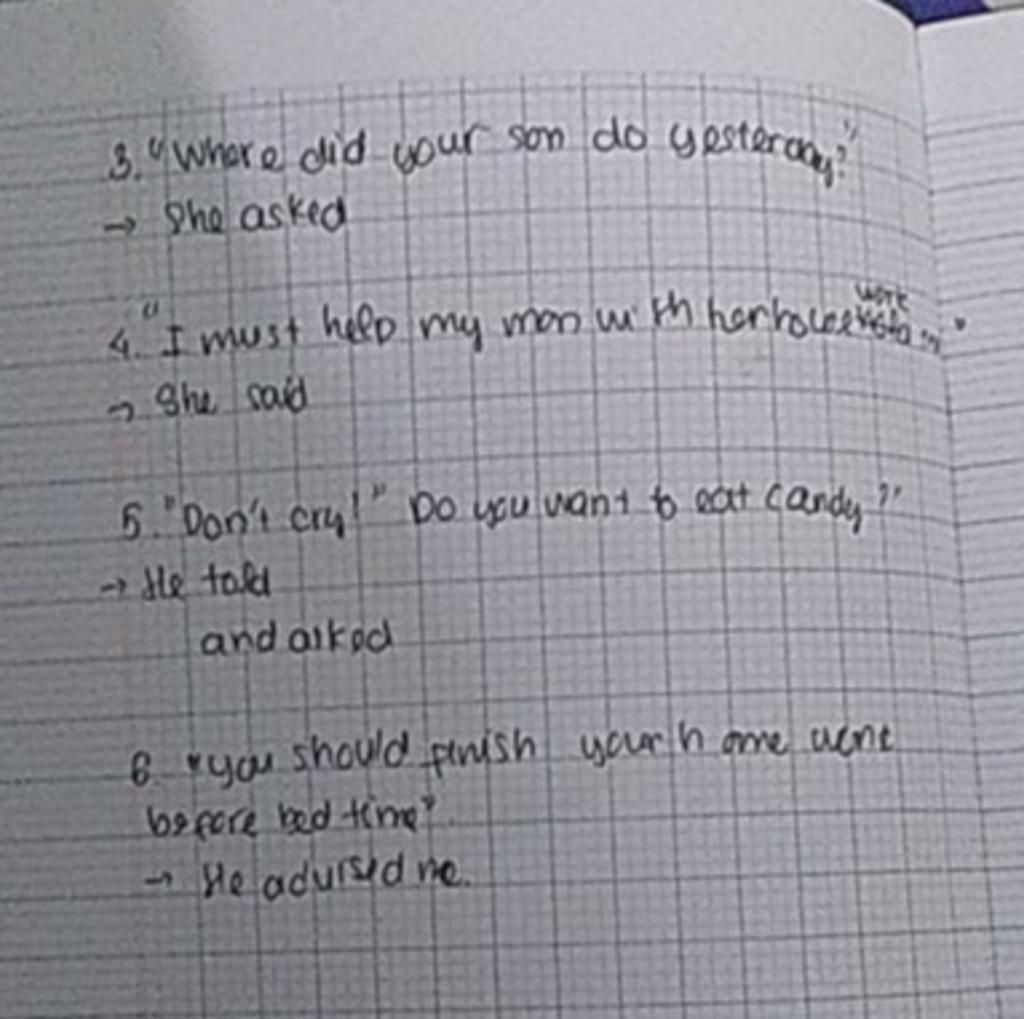 3. "Where did your son do yesterday?"
→ She asked
4. "I must help my mom with her house work
→ She said
5. "Don't cry!" Do you want to eat candy?"
→ He told
and asked
6. "you should finish your home
before bed time".
→ He advised me.